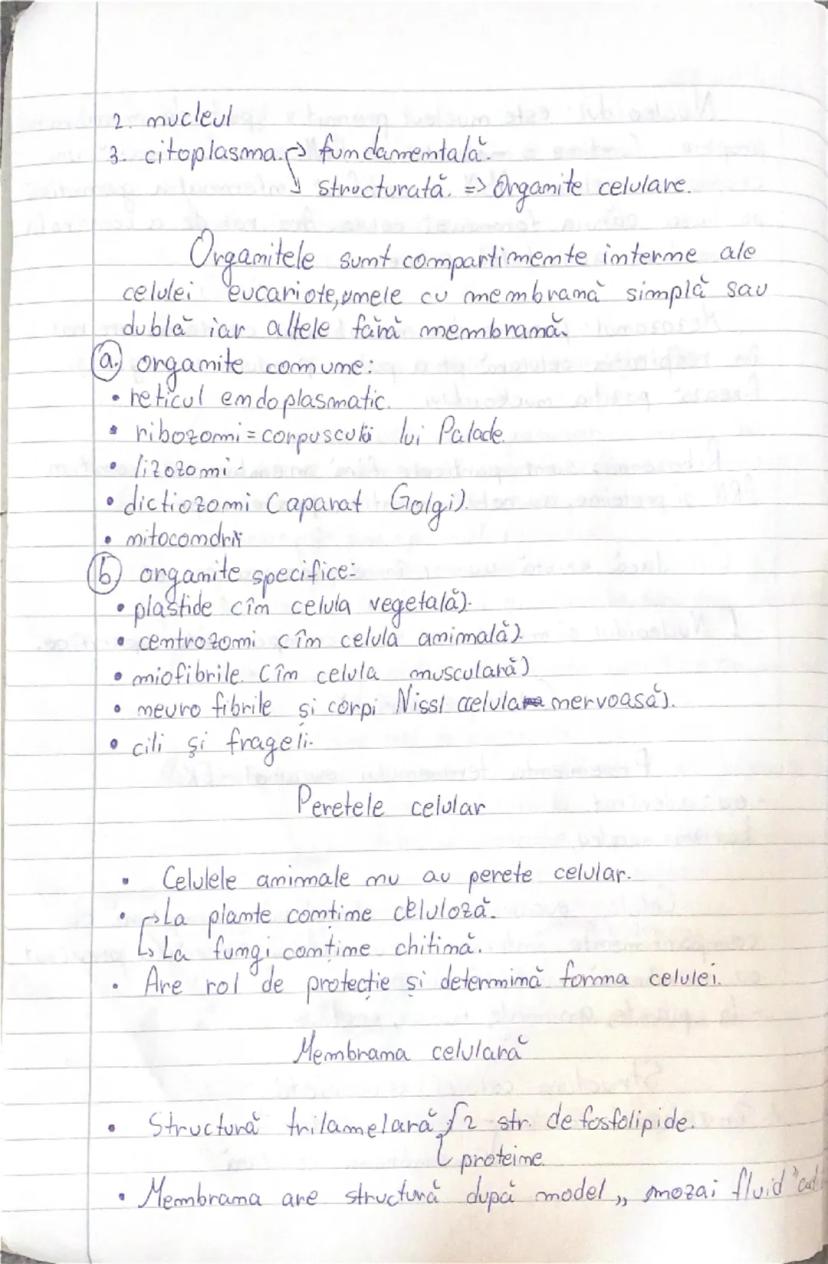 2. nucleul
3. citoplasma. → fundamentală.
↓ structurată. => Organite celulare.
Organitele sunt compartimente interne ale
celulei eucariote, unele cu membrană simplă sau
dublă iar altele fără membrană.
a. organite comune:
• reticul endoplasmatic.
• ribozomi = corpusculii lui Palade.
• lizozomi -
• dictiozomi (aparat Golgi).
• mitocondrii
b) organite specifice:
• plastide (în celula vegetală).
• centrozomi (în celulă animală).
• miofibrile (în celula musculară)
• neurofibrile și corpi Nissl (celula nervoasă).
• cili și frageli.
Peretele celular
• Celulele animale nu au perete celular.
• → La plante conține celuloză.
↳ La fungi conține chitină.
• Are rol de protecție și determină forma celulei.
Membrana celulară
• Structură trilamelară { 2 str. de fosfolipide.
proteine.
• Membrana are structură după model „ mozai fluid"